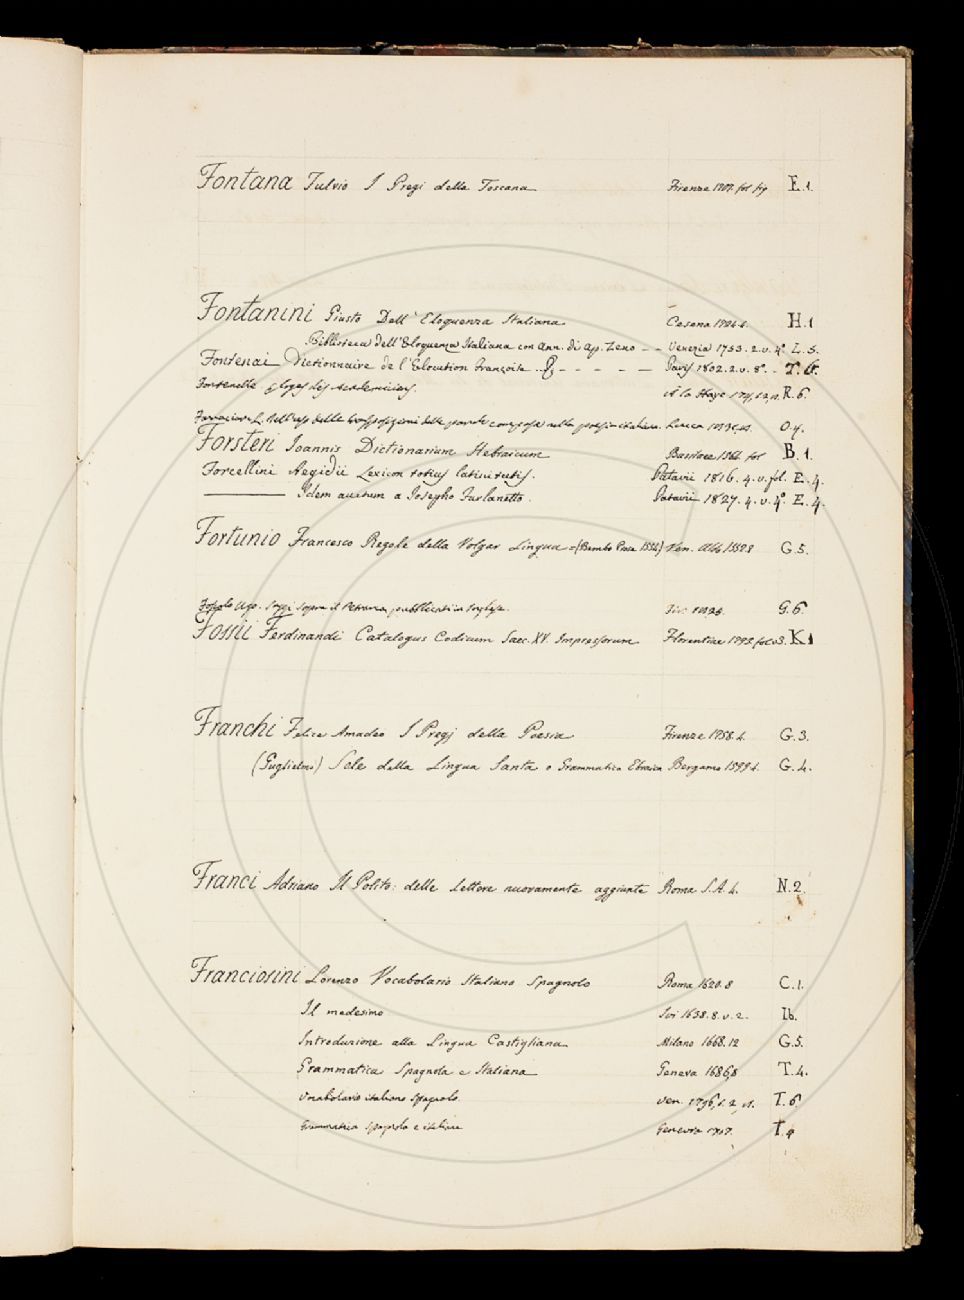 Fontana Fulvio I Pregi della Toscana Firenze 1701. fol fig E.1.
Fontanini Giusto Dell'Eloquenza Italiana Cesena 1724.4. H.1
Biblioteca dell'Eloquenza Italiana con Ann. di Ap. Zeno - - Venezia 1753. 2. v. 4º L.5.
Fontenai Dictionnaire de l'Elocution Françoise - - - - - Paris 1802. 2. v. 8º. - T.6.
Fontenelle Eloges des Academiciens. A la Haye R.6.
dell'uso delle della parole composte nella poesia italiana. Lucca O.4.
Forsteri Ioannis Dictionarium Hebraicum Basileae 1564 fol B.1.
Forcellini Aegidii Lexicon totius latinitatis. Patavii 1816. 4. v. fol. E.4.
——— Idem auctum a Josepho Furlanetto. Patavii 1827. 4. v. 4º E.4.
Fortunio Francesco Regole della Volgar Lingua (Bembo Prose 1552) Ven. Aldo 1552.8 G.5.
Foscolo Ugo. Saggi sopra il Petrarca, pubblicati in Inglese. G.6
Fossii Ferdinandi Catalogus Codicum Saec. XV. Impressorum Florentiae 1793. fol. v3. K1
Franchi Felice Amadeo I Pregj della Poesia Firenze 1758.4. G.3.
(Guglielmo) Sole della Lingua Santa o Grammatica Ebraica Bergamo 1599.4. G.4.
Franci Adriano Il Polito: delle lettere nuovamente aggiunte Roma S.A.4. N.2.
Franciosini Lorenzo Vocabolario Italiano Spagnolo Roma 1620.8 C.1.
Il medesimo Ivi 1638.8. v. 2. Ib.
Introduzione alla Lingua Castigliana Milano 1668.12 G.5.
Grammatica Spagnola e Italiana Geneva 1686,8 T.4.
Vocabolario italiano Spagnolo. Ven. 1796, T.6
Grammatica Spagnola e italiana Genevra 1707. T.4